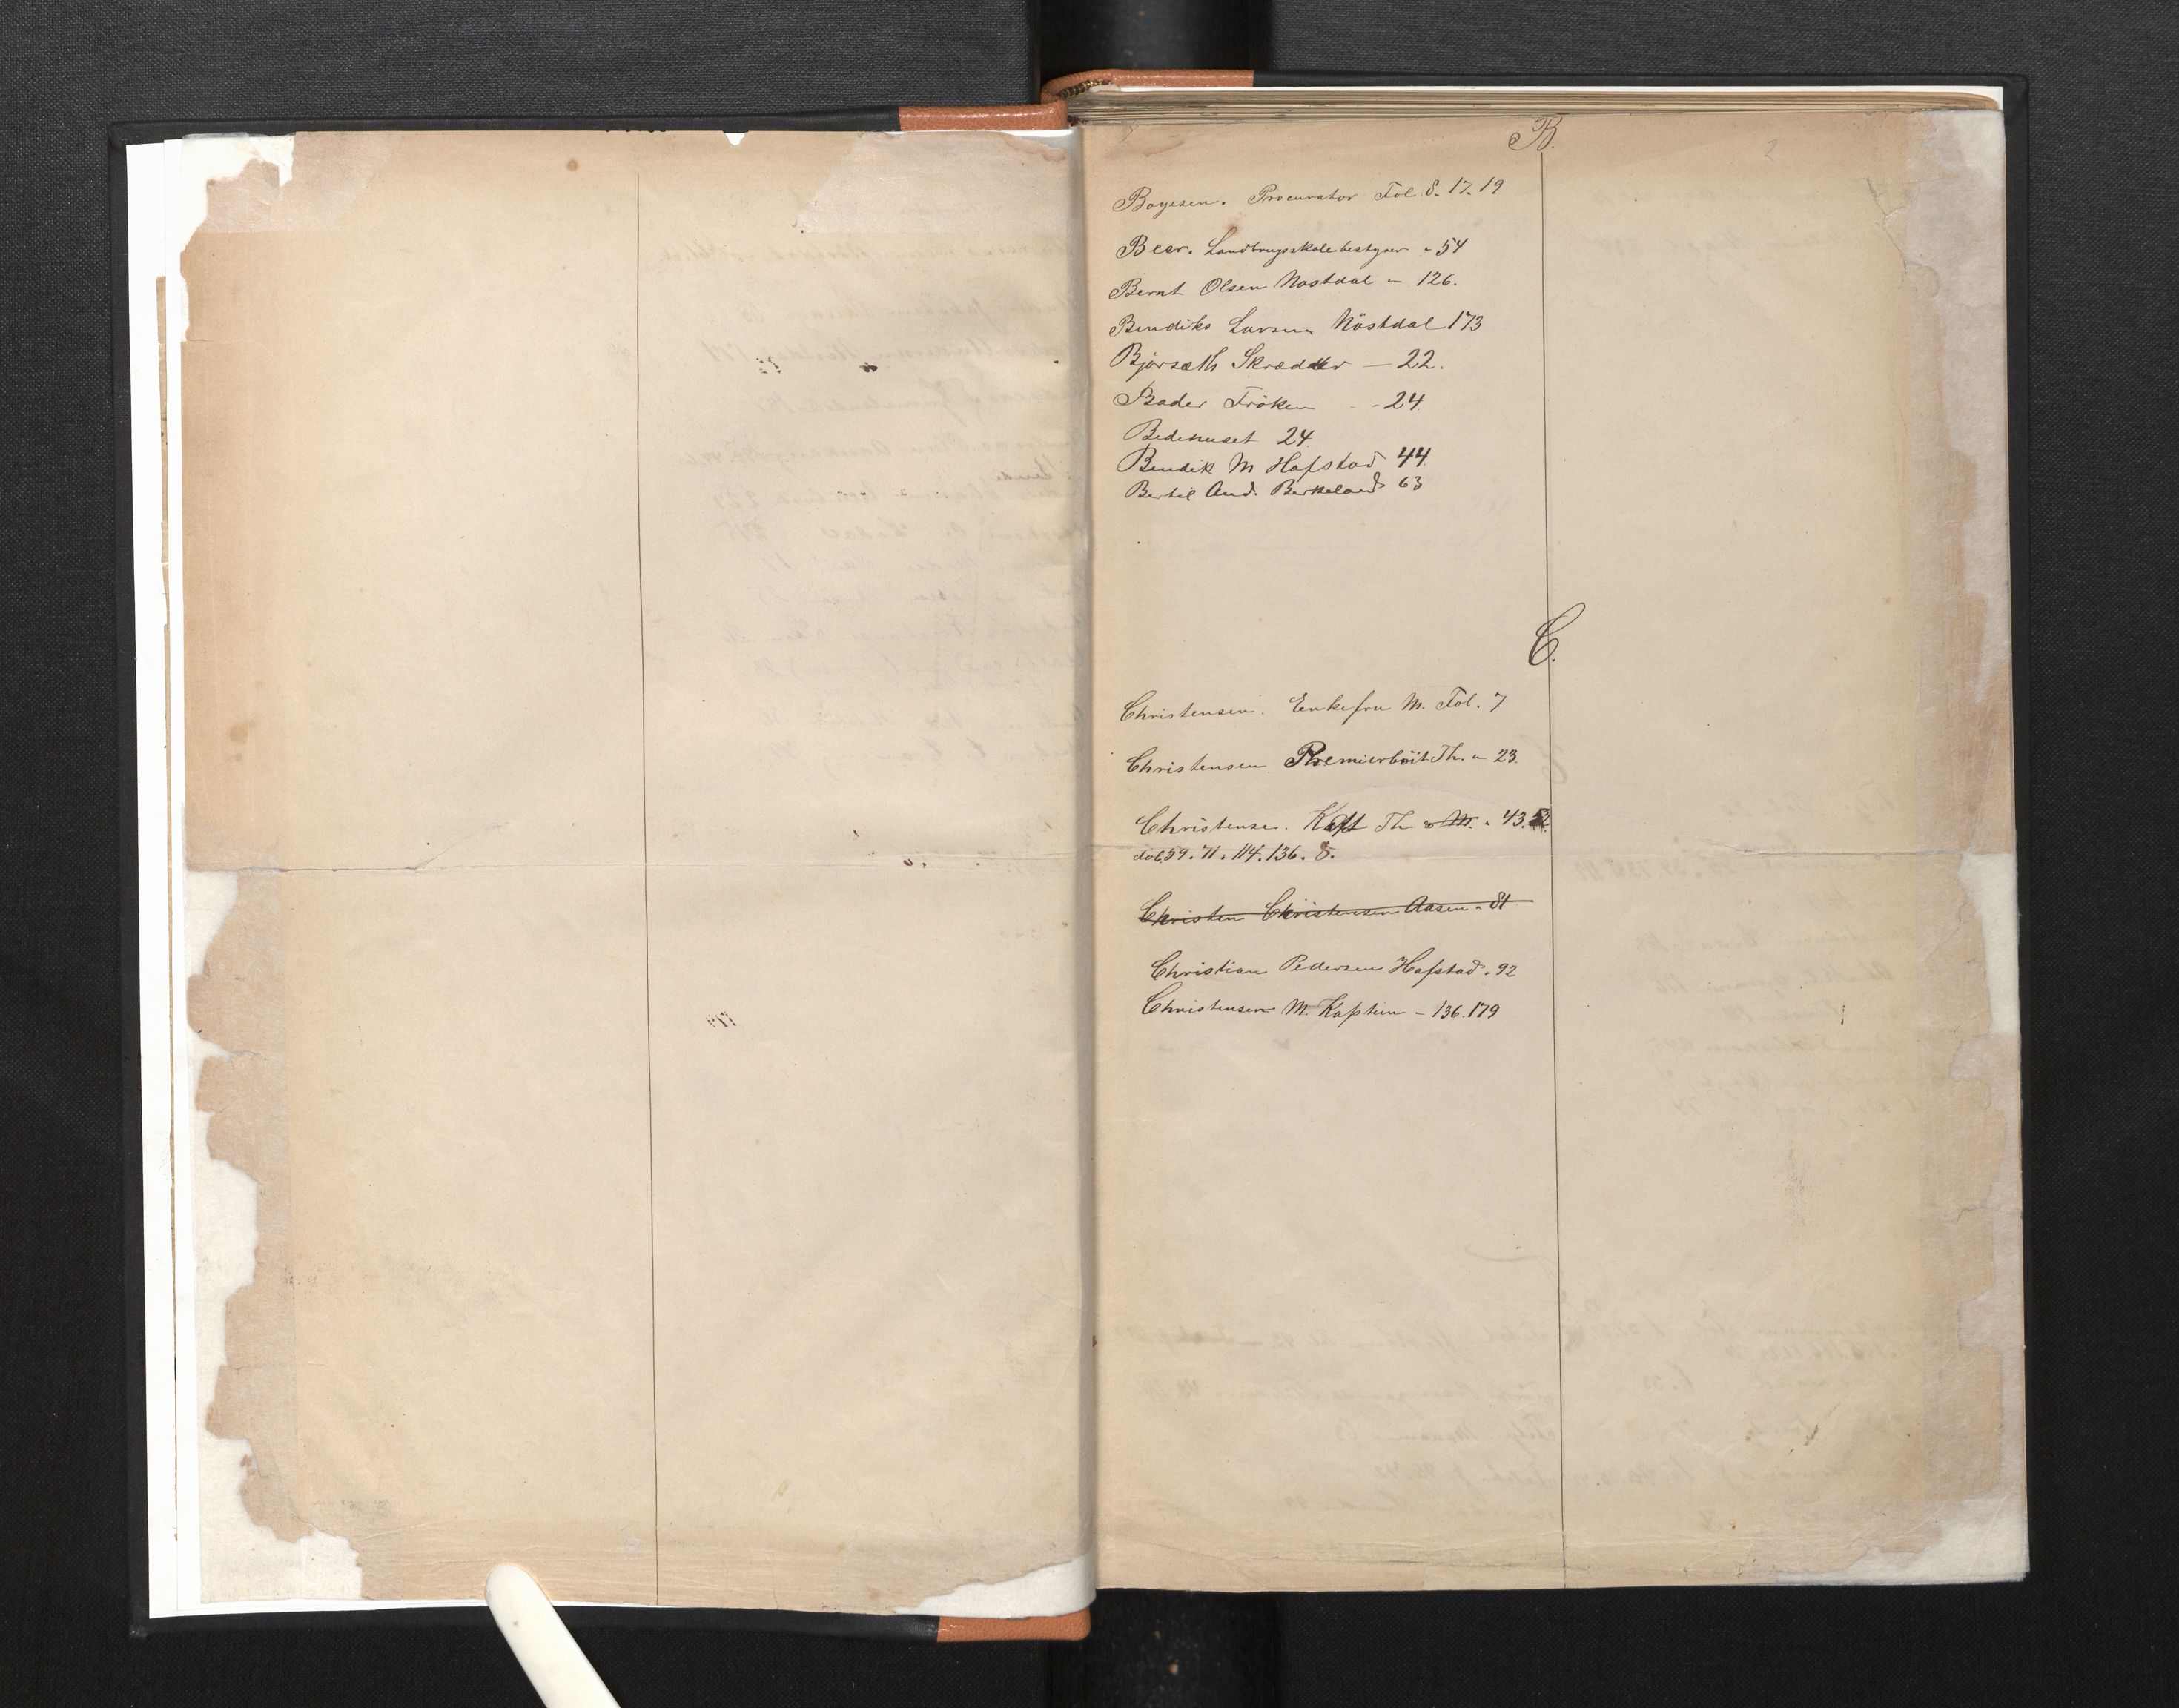 B.
2
Boyesen. Procurator Fol 8. 17. 19
Beer. Landbrugsskolebestyrer " 54
Bernt Olsen Nostdal " 126.
Bendiks Larsen Nöstdal 173
Bjørsæth Skrædder — 22.
Bader Fröken - - 24.
Bedehuset 24.
Bendik M Hafstad 44.
Bertil And. Berkeland 63
C.
Christensen. Enkefru M. Fol. 7
Christensen Premierløit Th. " 23.
Christense. Kapt Th & M. " 43. 52.
59. 71. 114. 136. 8.
Christen Christensen Aasen " 81
Christian Pedersen Hafstad " 92
Christensen M. Kaptein - 136. 179